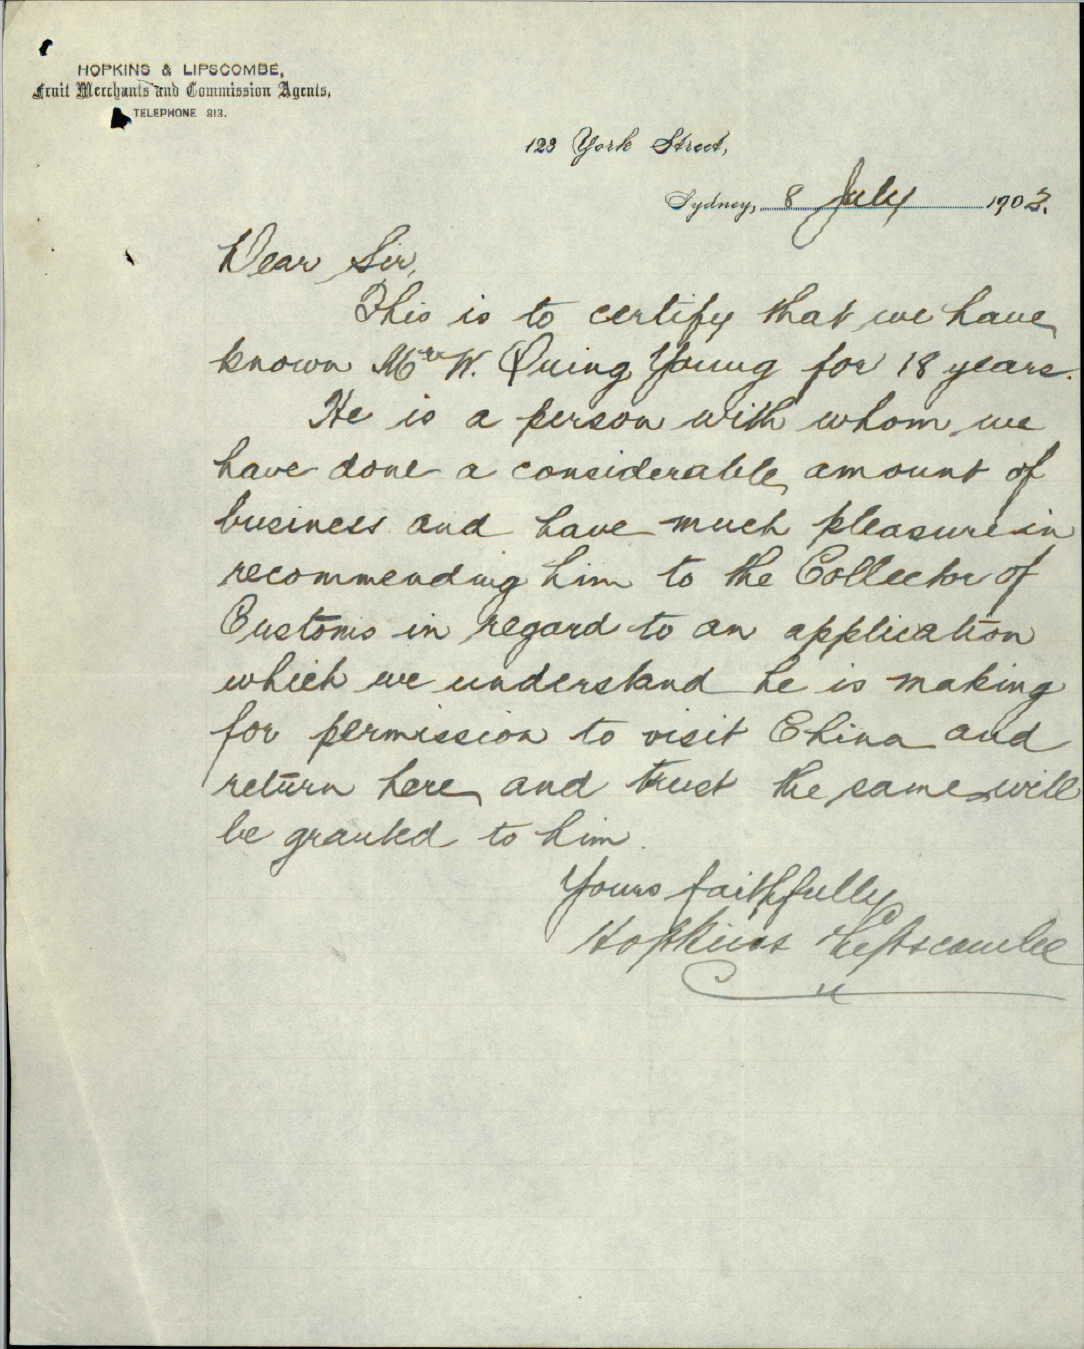 HOPKINS & LIPSCOMBE,
Fruit Merchants and Commission Agents,
TELEPHONE 813.
123 York Street,
Sydney, 8 July 1903.
Dear Sir,
This is to certify that we have
known Mr W. Quing Young for 18 years.
He is a person with whom we
have done a considerable amount of
business and have much pleasure in
recommending him to the Collector of
Customs in regard to an application
which we understand he is making
for permission to visit China and
return here and trust the same will
be granted to him.
Yours faithfully
Hopkins & Lipscombe